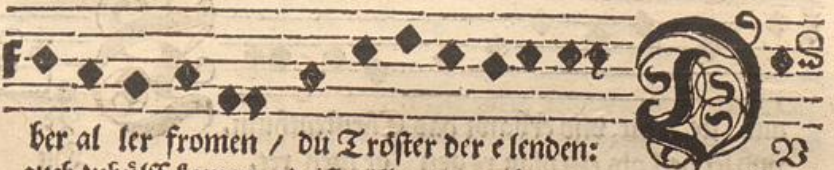 ber al ler fromen / du Tröster der e lenden:
D
V